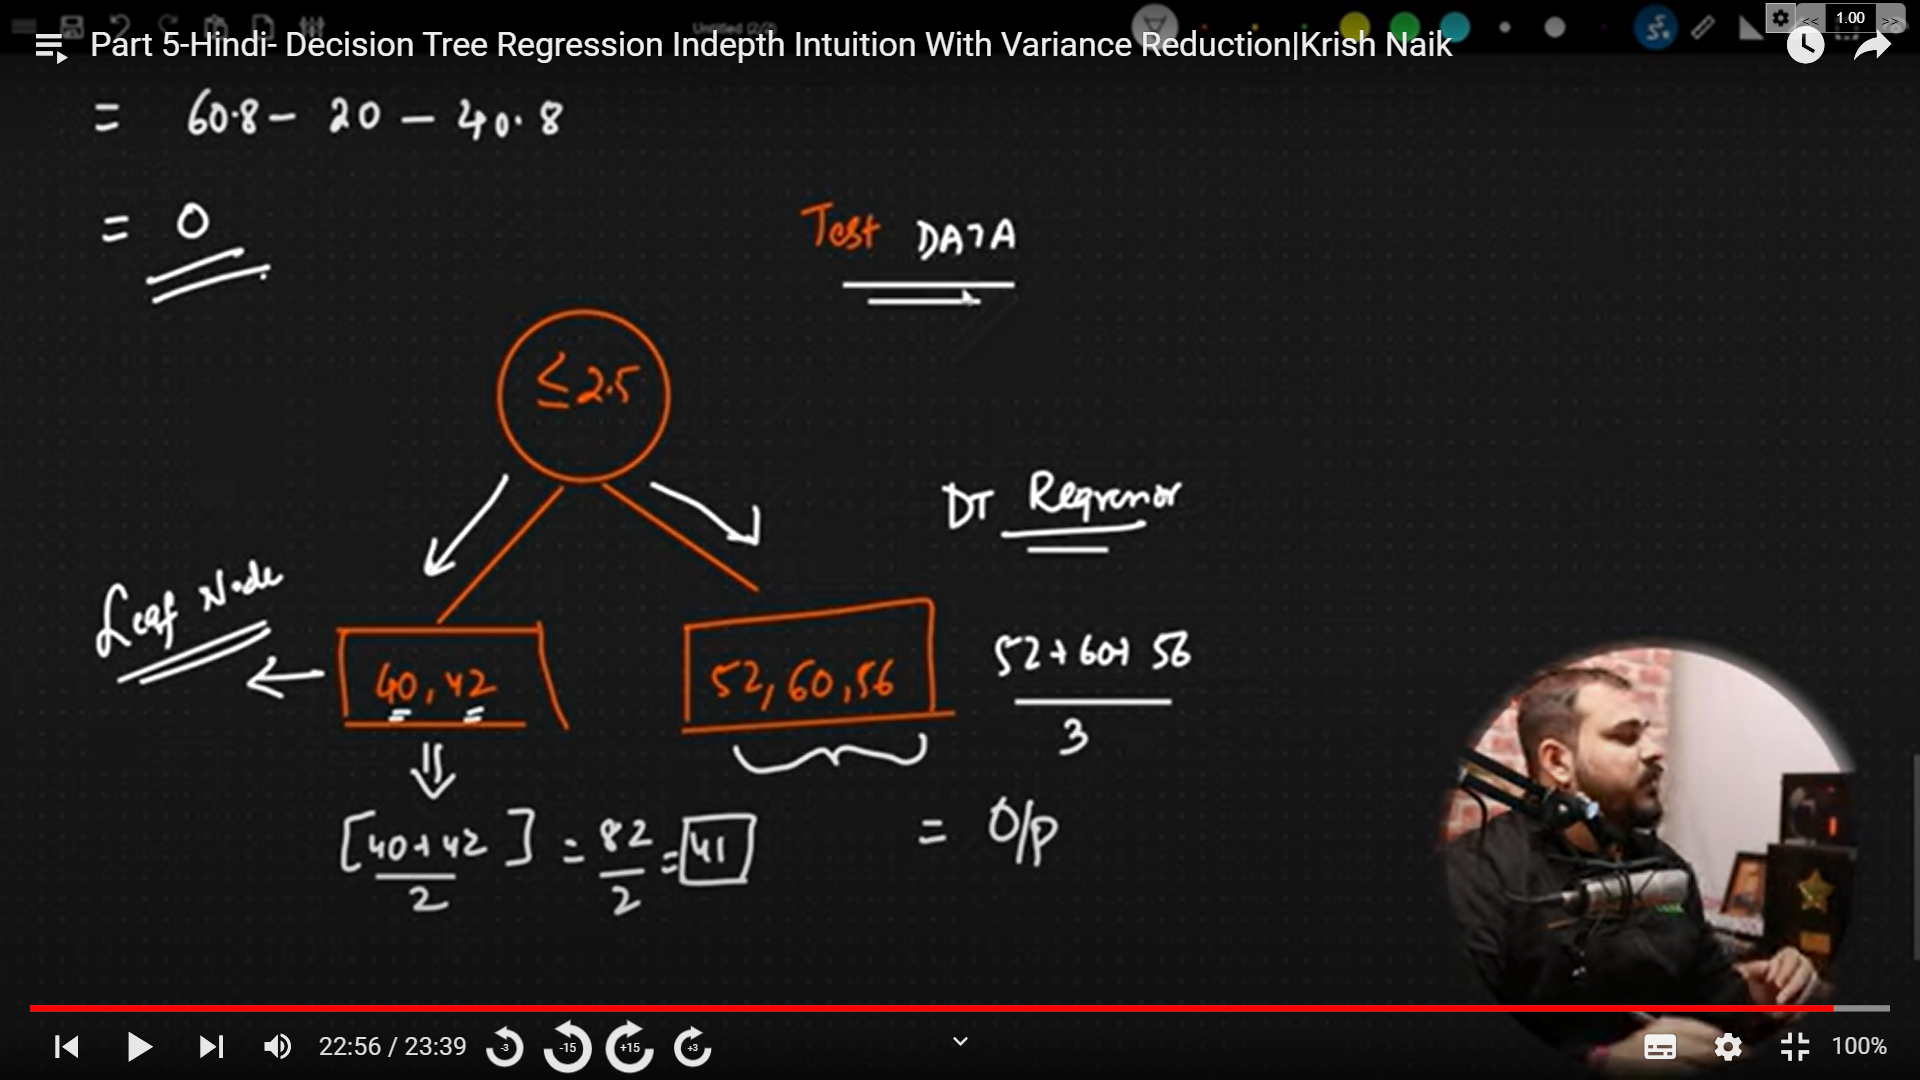 Untitled (2/2)
<< 1.00 >>
Part 5-Hindi- Decision Tree Regression Indepth Intuition With Variance Reduction|Krish Naik
= 60.8 - 20 - 40.8
= 0
Test DATA
≤ 2.5
DT Regressor
Leaf Node
40, 42
52, 60, 56
52 + 60 + 56
3
[40 + 42] = 82 = 41
2 2
= O/p
22:56 / 23:39
-3
-15
+15
+3
100%